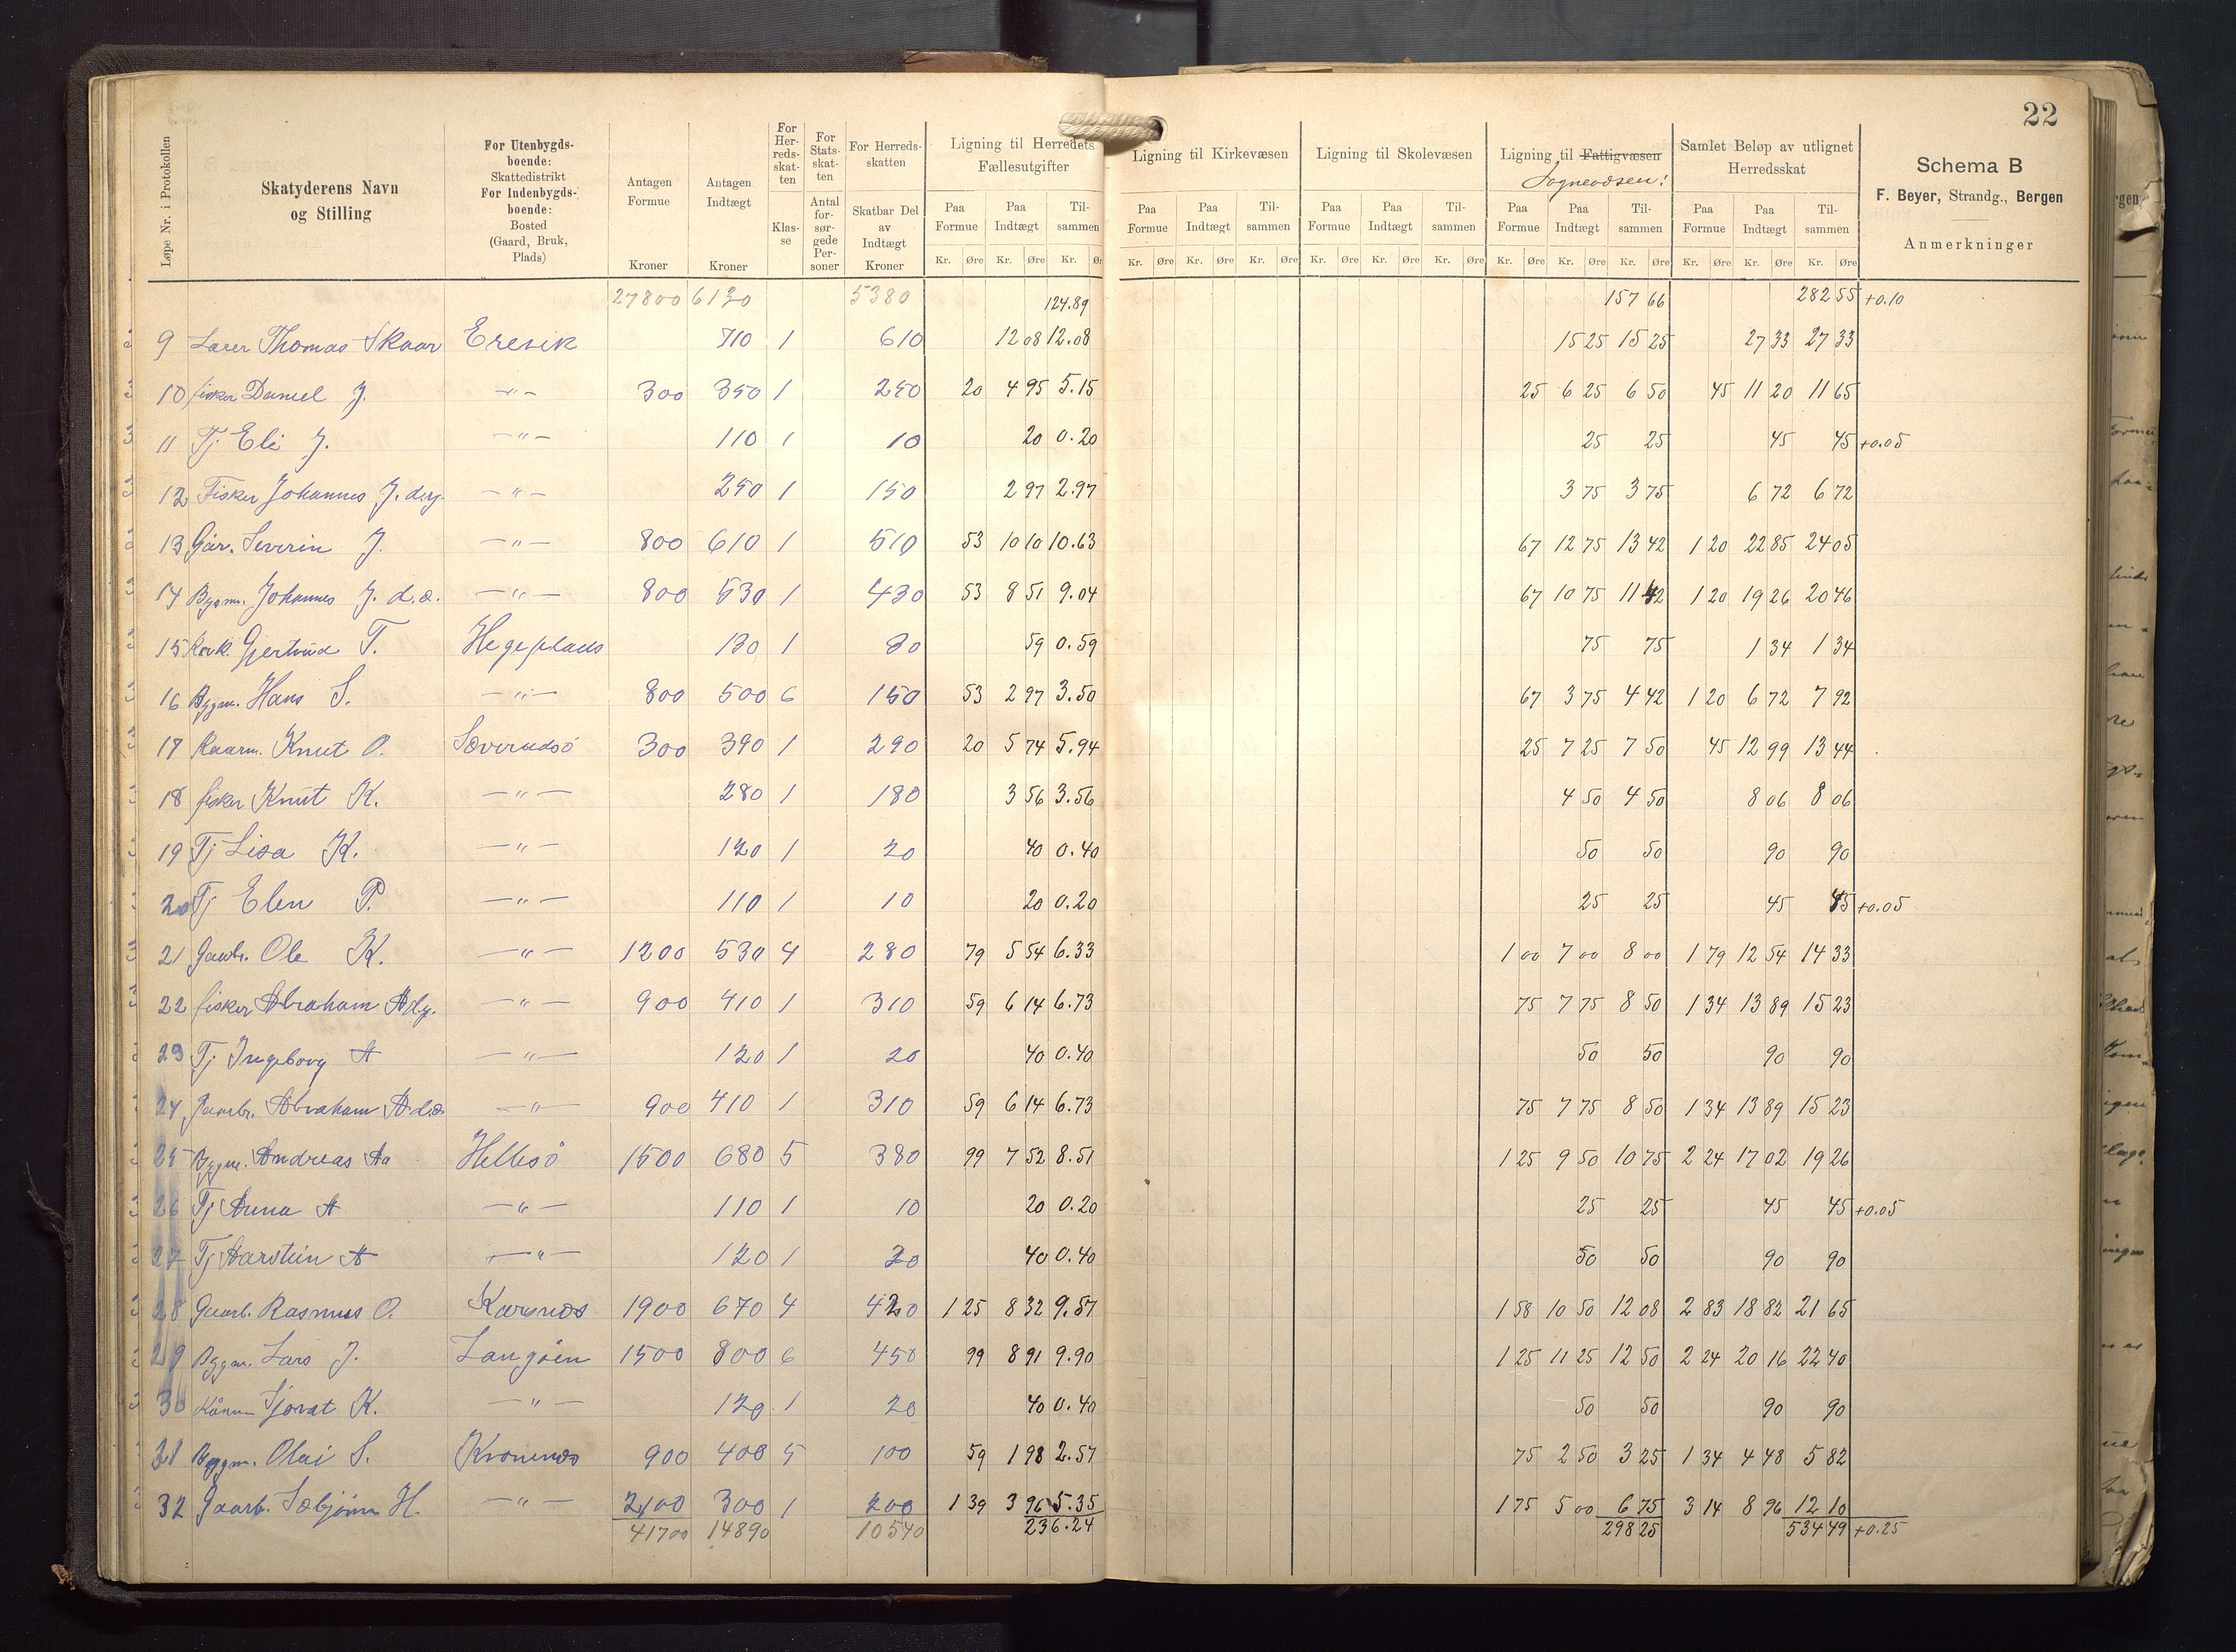 22
Løpe Nr. i Protokollen
Skatyderens Navn og Stilling
For Utenbygds-boende: Skattedistrikt For Indenbygds-boende: Bosted (Gaard, Bruk, Plads)
Antagen Formue Kroner
Antagen Indtægt Kroner
For Her-reds-skat-ten Klas-se
For Stats-skat-ten Antal for-sør-gede Per-soner
For Herreds-skatten Skatbar Del av Indtægt Kroner
Ligning til Herredets Fællesutgifter
Paa Formue Paa Indtægt Til-sammen
Kr. Øre Kr. Øre Kr. Ør
Ligning til Kirkevæsen
Paa Formue Paa Indtægt Til-sammen
Kr. Øre Kr. Øre Kr. Øre
Ligning til Skolevæsen
Paa Formue Paa Indtægt Til-sammen
Kr. Øre Kr. Øre Kr. Øre
Ligning til Fattigvæsen
Paa Formue Paa Indtægt Til-sammen
Kr. Øre Kr. Øre Kr. Øre
Samlet Beløp av utlignet Herredsskat
Paa Formue Paa Indtægt Til-sammen
Kr. Øre Kr. Øre Kr. Øre
Schema B
F. Beyer, Strandg., Bergen
Anmerkninger
27800 6130 5380 124.89 157 66 282 55 +0.10
9 Lærer Thomas Skaar 710 1 610 12 08 12.08 15 25 15 25 27 33 27 33
10 fisker Daniel J. —"— 300 350 1 250 20 4 95 5.15 25 6 25 6 50 45 11 20 11 65
11 Tj Eli J. —"— 110 1 10 20 0.20 25 25 45 45 +0.05
12 Fisker Johannes J. d.y. —"— 250 1 150 2 97 2.97 3 75 3 75 6 72 6 72
13 Går. Severin J. —"— 800 610 1 510 53 10 10 10.63 67 12 75 13 42 1 20 22 85 24 05
14 Bygm. Johannes J. d.æ. —"— 800 530 1 430 53 8 51 9.04 67 10 75 11 42 1 20 19 26 20 46
15 Gjertrud T. Hegeplads 130 1 30 59 0.59 75 75 1 34 1 34
16 Bygm. Hans S. —"— 800 500 6 150 53 2 97 3.50 67 3 75 4 42 1 20 6 72 7 92
17 Kaarm. Knut O. 300 390 1 290 20 5 74 5.94 25 7 25 7 50 45 12 99 13 44
18 fisker Knut K. —"— 280 1 180 3 56 3.56 4 50 4 50 8 06 8 06
19 Tj Lisa K. —"— 120 1 20 40 0.40 50 50 90 90
20 Tj Elen P. —"— 110 1 10 20 0.20 25 25 45 45 +0.05
21 Gaarb. Ole K. —"— 1200 530 4 280 79 5 54 6.33 1 00 7 00 8 00 1 79 12 54 14 33
22 fisker Abraham A d.y. —"— 900 410 1 310 59 6 14 6.73 75 7 75 8 50 1 34 13 89 15 23
23 Tj Ingeborg A —"— 120 1 20 40 0.40 50 50 90 90
24 Gaarbr. Abraham A d.æ —"— 900 410 1 310 59 6 14 6.73 75 7 75 8 50 1 34 13 89 15 23
25 Bygm. Andreas Aa Hellesö 1500 680 5 380 99 7 52 8.51 1 25 9 50 10 75 2 24 17 02 19 26
26 Tj Anna A —"— 110 1 10 20 0.20 25 25 45 45 +0.05
27 Tj Aarstein A —"— 120 1 20 40 0.40 50 50 90 90
28 Gaarb. Rasmus O. Karsnæs 1900 670 4 420 1 25 8 32 9.57 1 58 10 50 12 08 2 83 18 82 21 65
29 Bygm. Lars J. Langöen 1500 800 6 450 99 8 91 9.90 1 25 11 25 12 50 2 24 20 16 22 40
30 Sjovat K. —"— 120 1 20 40 0.40 50 50 90 90
31 Bygm. Olai S. Kronenæs 900 400 5 100 59 1 98 2.57 75 2 50 3 25 1 34 4 48 5 82
32 Gaarb. Sæbjörn H. —"— 2100 300 1 200 1 39 3 96 5.35 1 75 5 00 6 75 3 14 8 96 12 10
41700 14890 10540 236.24 298 25 534 49 +0.25